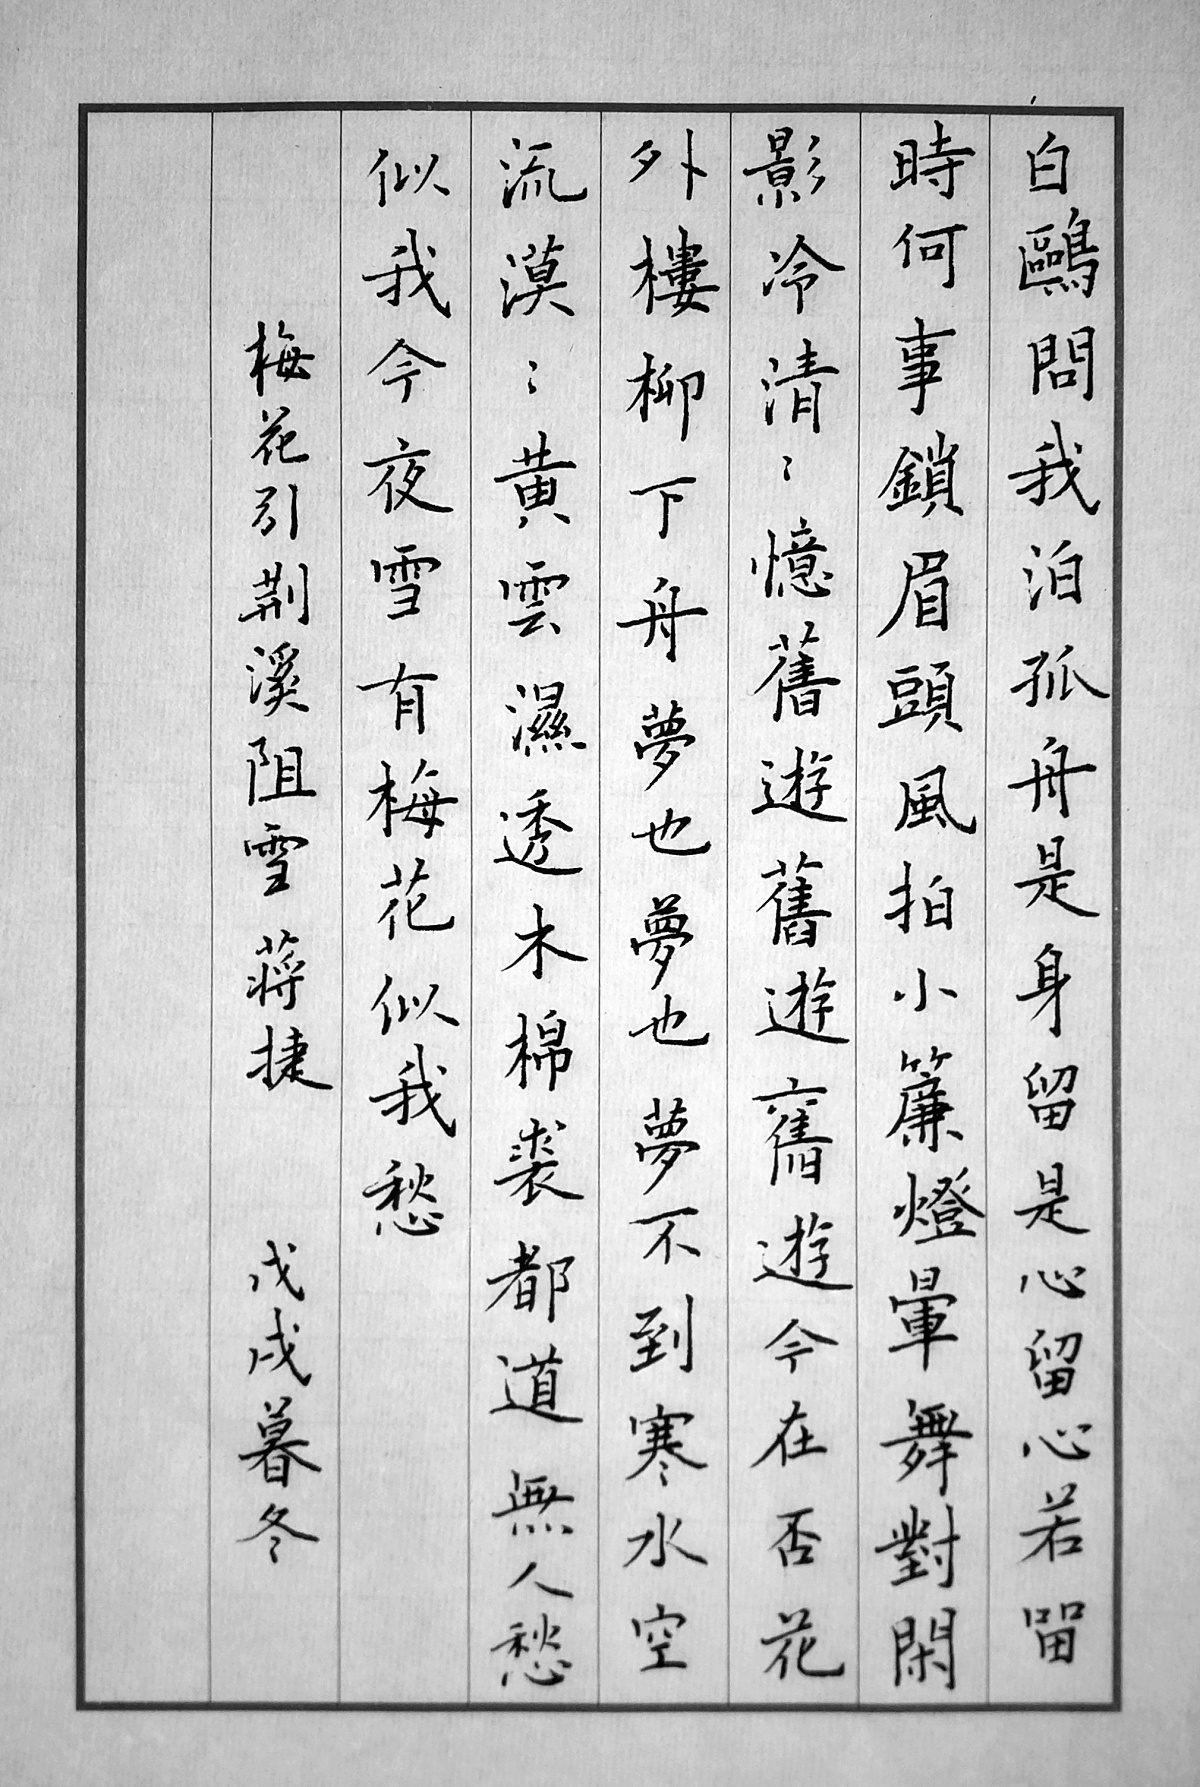 白鷗問我泊孤舟是身留是心留心若留
時何事鎖眉頭風拍小簾燈暈舞對閑
影冷清〻憶舊遊舊遊舊遊今在否花
外樓柳下舟夢也夢也夢不到寒水空
流漠〻黃雲濕透木棉裘都道無人愁
似我今夜雪有梅花似我愁
梅花引荆溪阻雪 蔣捷 戊戌暮冬